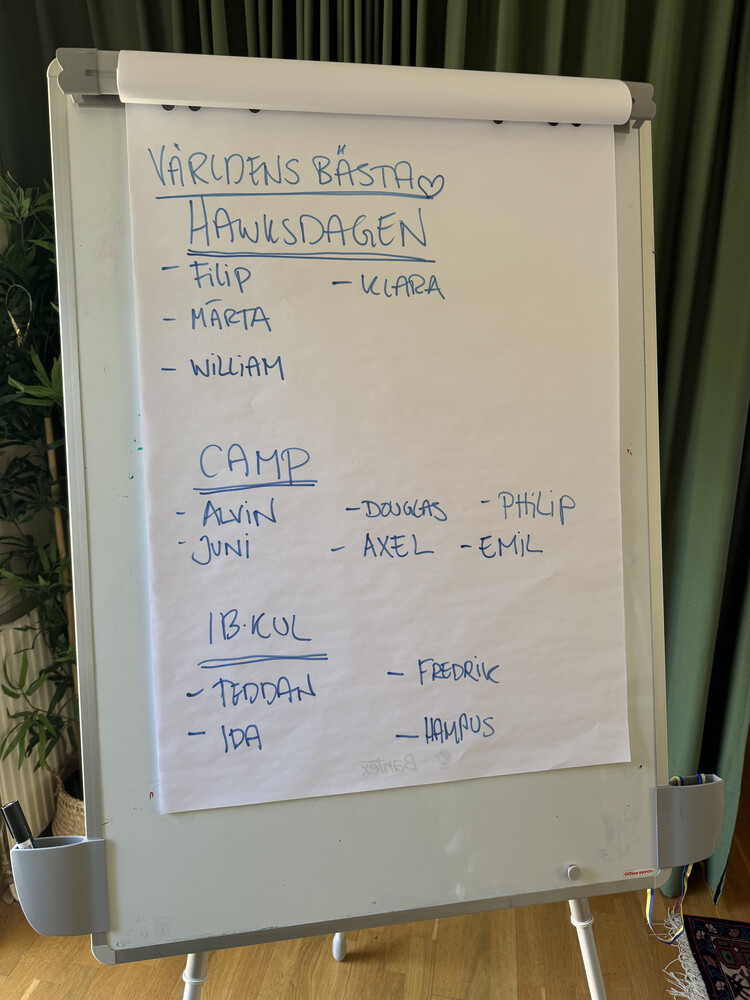 VÄRLDENS BÄSTA♡
HAWKSDAGEN
- FiLiP - KLARA
- MÄRTA
- WiLLiAM
CAMP
- ALViN - DOUGLAS - PHiLiP
- JUNi - AXEL - EMiL
IB·KUL
- TEDDAN - FREDRIK
- IDA - HAMPUS
Bantex
Office DEPOT